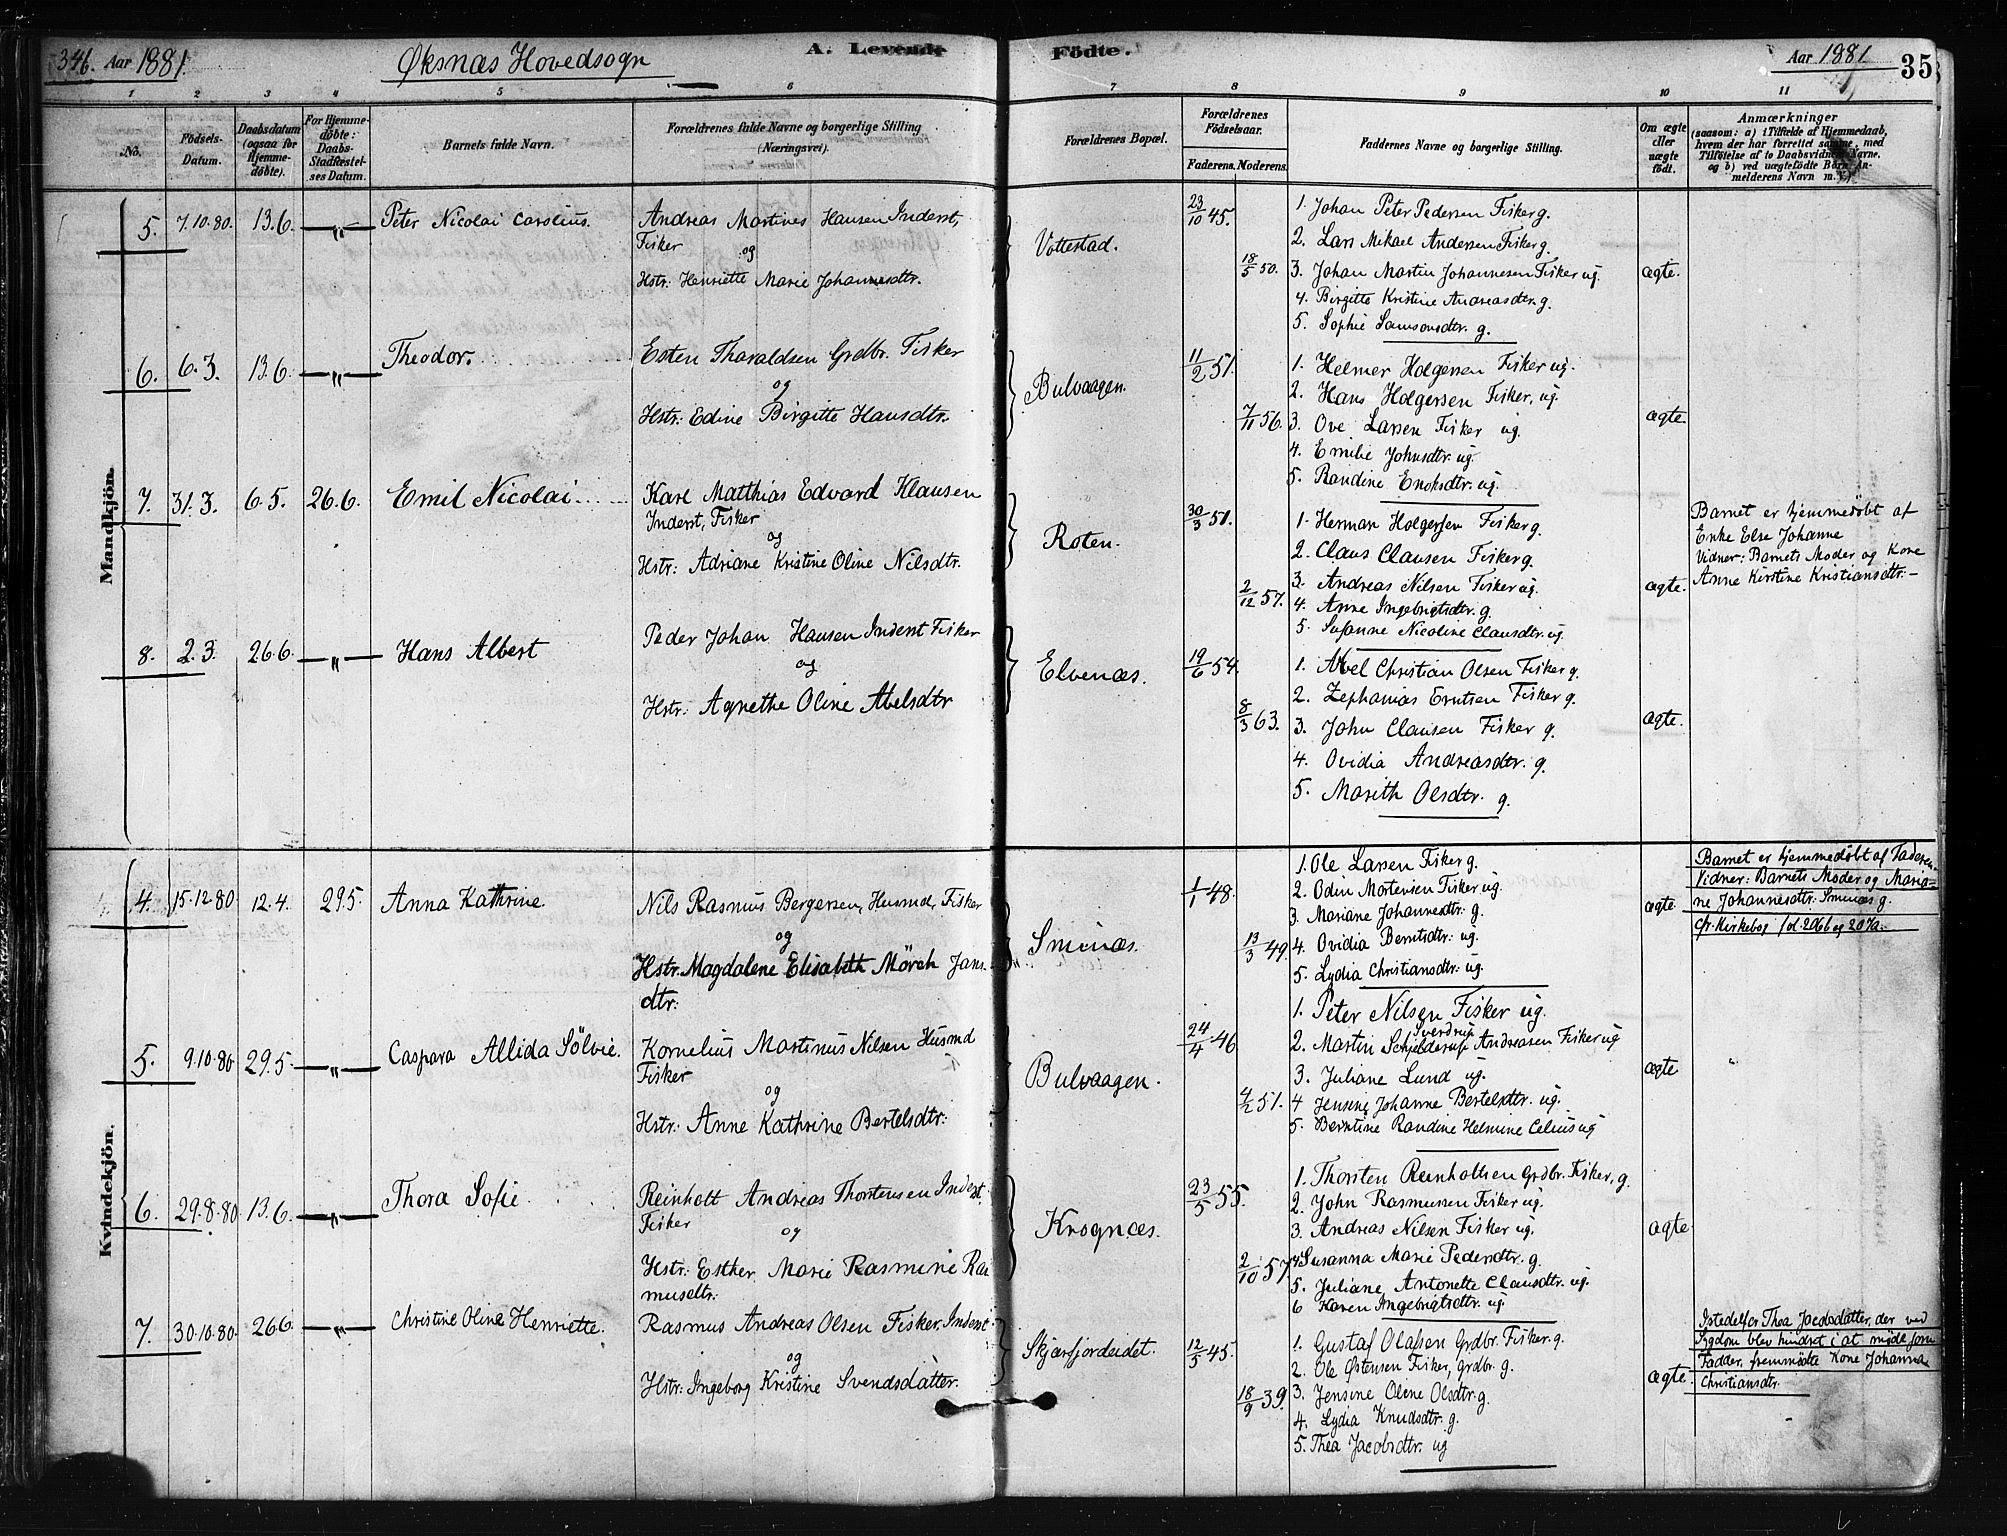 346. Aar 1881. Øksnæs Hovedsogn A. Levende Födte. Aar 1881 35
1 2 3 4 5 6 7 8 9 10 11
No.
Födsels-
Datum.
Daabsdatum
(ogsaa for
Hjemme-
döbte).
For Hjemme-
döbte:
Daabs-
Stadfæstel-
ses Datum.
Barnets fulde Navn.
Forældrenes fulde Navne og borgerlige Stilling
(Næringsvei).
Forældrenes Bopæl.
Forældrenes
Födselsaar.
Faderens. Moderens.
Faddernes Navne og borgerlige Stilling.
Om ægte
eller
uægte
födt.
Anmærkninger
(saasom: a) i Tilfælde af Hjemmedaab,
hvem der har forrettet samme, med
Tilföielse af to Daabsvidners Navne,
og b) ved uægtefödte Børn An-
melderens Navn m. V.)
Mandkjön.
5. 7.10.80. 13.6. —"— Peter Nicolai Carolius.
Andreas Martines Hansen Inderst,
Fisker
og
Hstr: Henriette Marie Johannesdtr.
Vottestad.
23/10 45.
18/5 50.
1. Johan Peter Pedersen Fisker g.
2. Lars Mikael Andersen Fisker g.
3. Johan Martin Johannesen Fisker ug.
4. Birgitte Kristine Andreasdtr. g.
5. Sophie Samsonsdtr. g.
ægte.
6. 6.3. 13.6. —"— Theodor.
Esten Tharaldsen Grdbr. Fisker
og
Hstr: Edine Birgitte Hansdtr.
Bulvaagen.
11/2 51.
7/11 56.
1. Helmer Holgersen Fisker ug.
2. Hans Holgersen Fisker, ug.
3. Ove Larsen Fisker ug.
4. Emilie Johnsdtr. ug.
5. Randine Enoksdtr. ug.
ægte.
7. 31.3. 6.5. 26.6. Emil Nicolai
Karl Matthias Edvard Klausen
Inderst, Fisker
og
Hstr: Adriane Kristine Oline Nilsdtr.
Roten.
30/3 51.
2/12 57.
1. Herman Holgersen Fisker g.
2. Claus Clausen Fisker g.
3. Andreas Nilsen Fisker ug.
4. Anne Ingebrigtsdtr. g.
5. Susanne Nicoline Clausdtr. ug.
ægte.
Barnet er hjemmedöbt af
Enke Else Johanne
Vidner: Barnets Moder og Kone
Anne Kirstine Kristiansdtr: —
8. 2.3. 26.6. —"— Hans Albert
Peder Johan Hansen Inderst Fisker
og
Hstr: Agnethe Oline Abelsdtr
Elvenæs.
19/6 54.
8/3 63.
1. Abel Christian Olsen Fisker g.
2. Zephanias Erntsen Fisker g.
3. John Clausen Fisker g.
4. Ovidia Andreasdtr. g.
5. Marith Olsdtr. g.
ægte.
Kvindekjön.
4. 15.12.80 12.4. 29.5. Anna Kathrine.
Nils Rasmus Bergersen, Husmd, Fisker
og
Hstr. Magdalene Elisabeth Mörch Jans-
dtr:
Smines.
1/1 48.
13/3 49.
1. Ole Larsen Fisker g.
2. Odin Mortensen Fisker ug.
3. Mariane Johannesdtr: g.
4. Ovidia Berntsdtr: ug.
5. Lydia Christiansdtr: ug.
ægte.
Barnet er hjemmedöbt af Faderen.
Vidner: Barnets Moder og Maria-
ne Johannesdtr: Smenæs g.
cfr. Kirkebog fol. 206b og 207a.
5. 9.10.80 29.5. —"— Caspara Allida Sölvie.
Kornelius Martinus Nilsen Husmd
Fisker
og
Hstr: Anne Kathrine Bertelsdtr:
Bulvaagen.
24/4 46.
4/2 51.
1. Peter Nilsen Fisker ug.
Sverdrup
2. Martin Schjelderup Andreasen Fisker ug
3. Juliane Lund ug.
4 Jensine Johanne Bertelsdtr. ug.
5. Berntine Randine Helmine Celius ug
ægte
6. 29.8.80. 13.6. —"— Thora Sofie
Reinholt Andreas Thorstensen Inderst
Fisker
og
Hstr: Esther Marie Rasmine Ras
musdtr:
Krognæs.
23/5 55.
2/10 57.
1. Thorsten Reinholtsen Grdbr. Fisker, g.
2. John Rasmussen Fisker ug.
3. Andreas Nilsen Fisker ug.
4 Susanna Marie Pedersdtr. g.
5. Juliane Antonette Clausdtr. ug.
6 Karen Ingebrigtsdtr. ug.
ægte.
7. 30.10.80 26.6 —"— Christine Oline Henriette.
Rasmus Andreas Olsen Fisker, Inderst
og
Hstr: Ingeborg Kristine Svendsdatter.
Skjærfjordeidet.
12/5 45.
18/9 39.
1. Gustaf Olafsen Grdbr. Fisker. g.
2. Ole Østensen Fisker, Grdbr. g.
3. Jensine Oline Olsdtr. g.
4. Lydia Knudsdtr. g.
5. Thea Jacobsdtr. ug
ægte.
Istedetfor Thea Jacobsdatter, der ved
Sygdom blev hindret i at möde som
Fadder, fremmödte Kone Johanna
Christiansdtr.